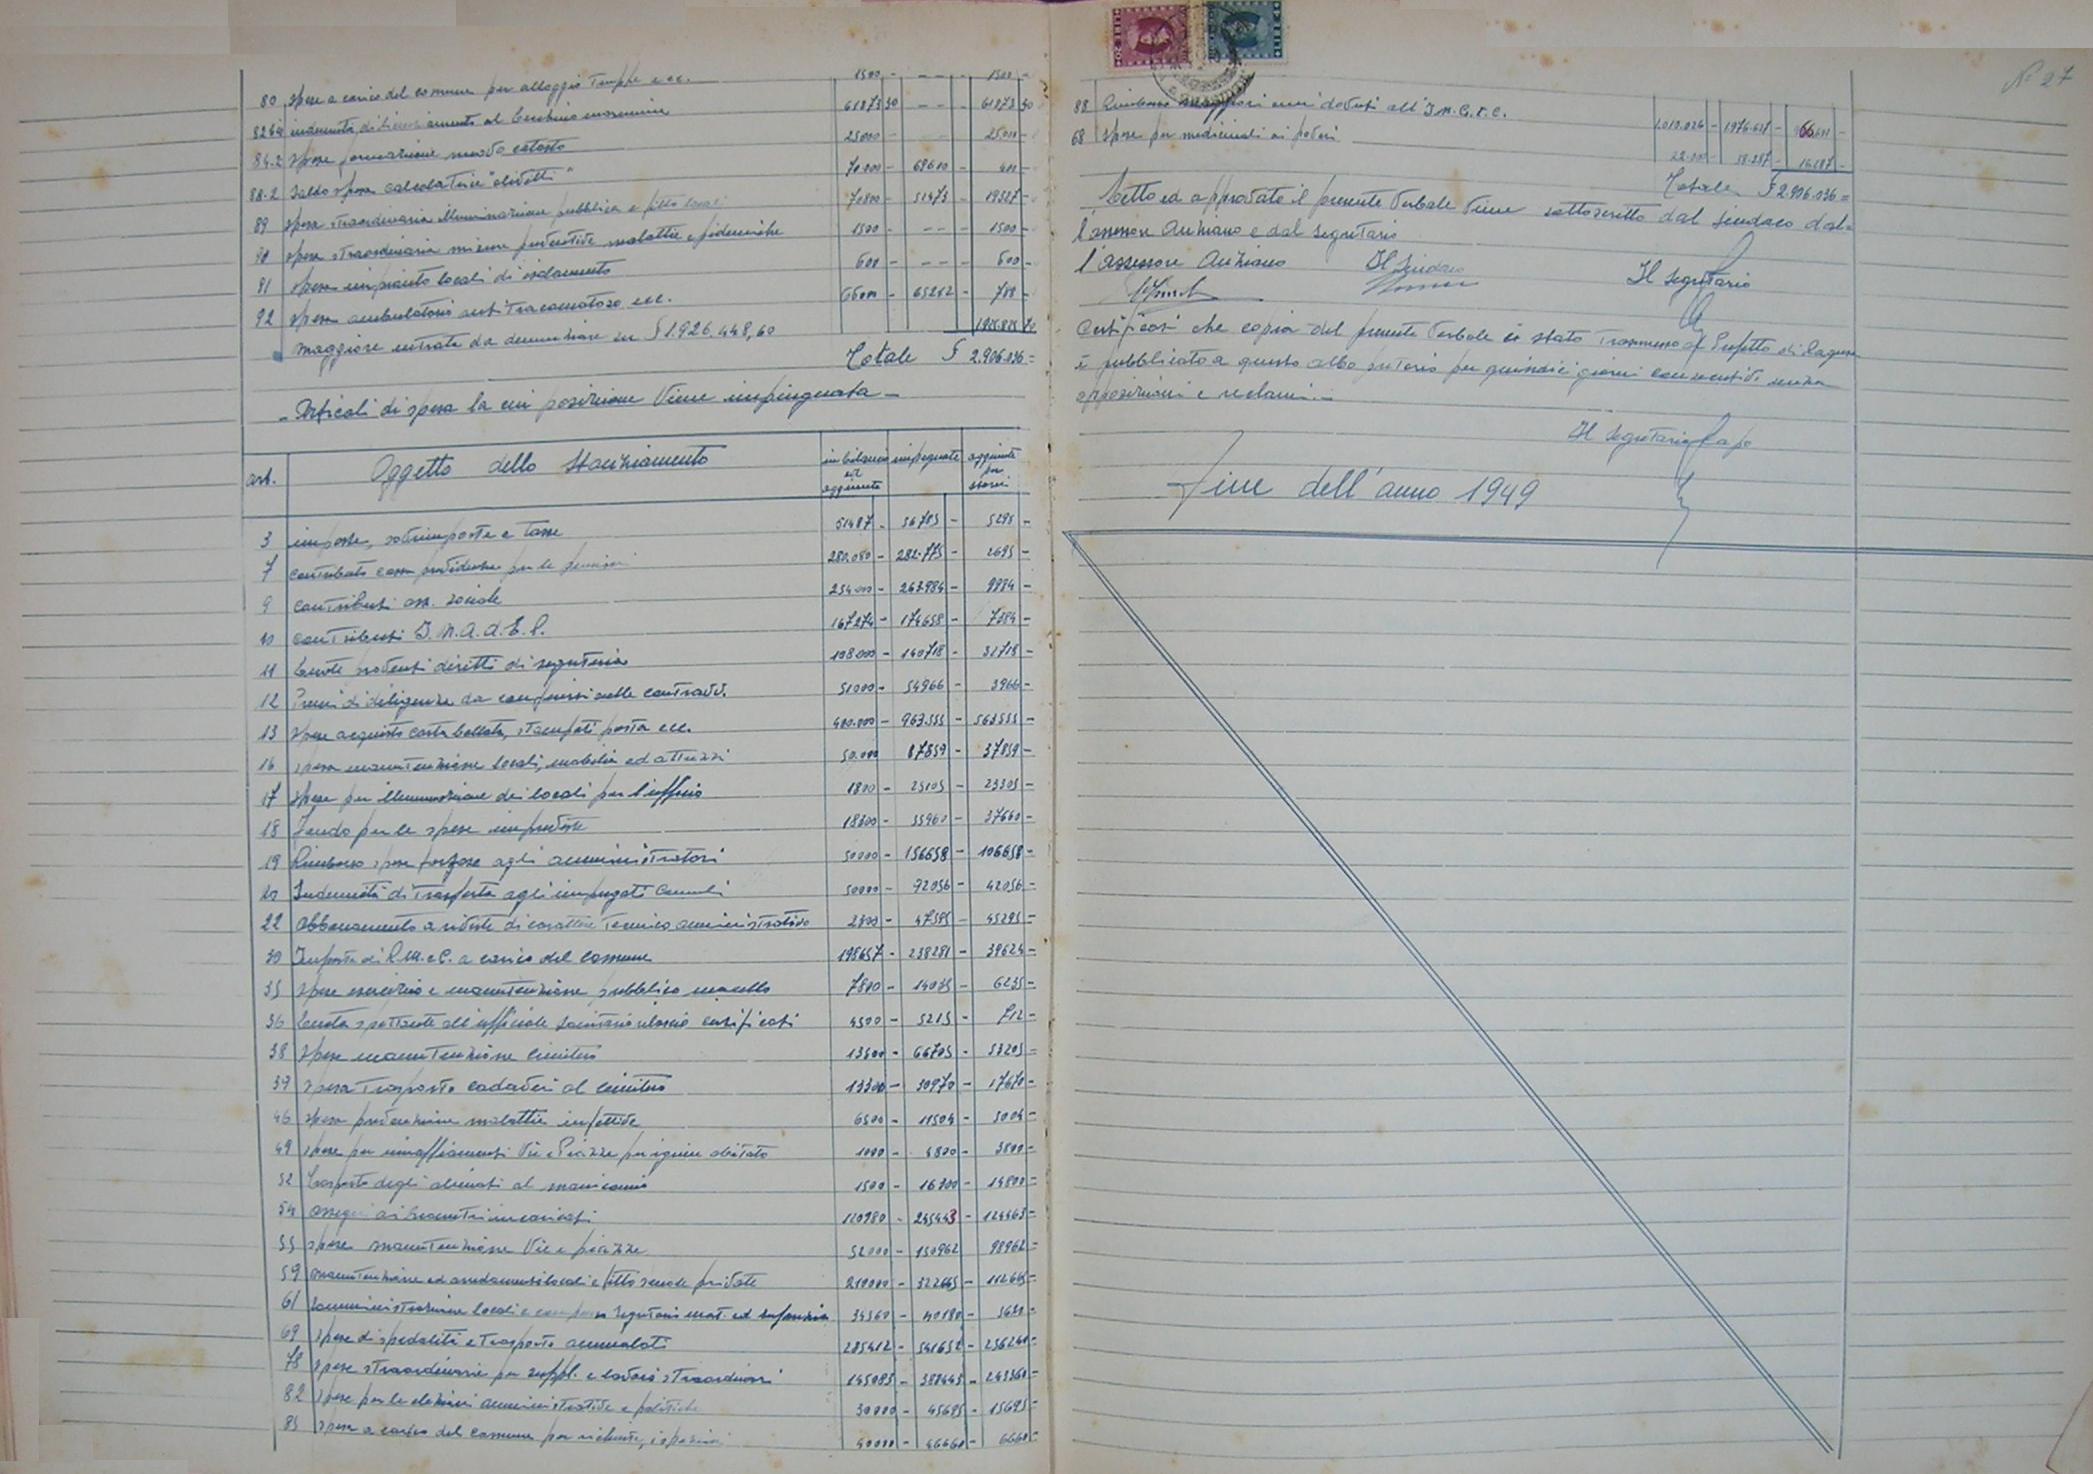 80 spese a carico del comune per alloggio Truppe e cc. 1500 - - - - 1500 -
61873 30 - - - 61873 30
84.2 spese formazione nuovo catasto 25000 - - - 25000 -
88.2 Saldo spese calcolatrice "olivetti" 70000 - 69600 - 400 -
89 spese straordinaria illuminazione pubblica e fitto locali 70800 - 51473 - 19327 -
90 spese straordinaria misure preventive malattie epidemiche 1500 - - - 1500 -
91 spese impianto locali di isolamento 600 - - - 600 -
92 spese ambulatorio antitracomatoso ecc. 66000 - 65212 - 788 -
maggiore entrata da denunziare in £ 1.926.448,60
Totale £ 2.906.036 =
- Articoli di spesa la cui posizione viene impinguata -
art. Oggetto dello Stanziamento in bilancio ed aggiunte impegnate aggiunte per storni
3 imposte, sovrimposte e tasse 51487 - 56785 - 5298 -
7 contributo cassa previdenza per le pensioni 280.080 - 282.775 - 2695 -
9 contributi ass. sociale 254000 - 263984 - 9984 -
10 contributi I.N.A.D.E.L. 167274 - 174658 - 7384 -
11 Quote proventi diritti di segreteria 108000 - 140718 - 32718 -
12 Premi di diligenza da corrispondersi sulle contravv. 51000 - 54966 - 3966 -
13 spese acquisto carta bollata, stampati posta ecc. 400.000 - 963555 - 563555 -
16 spese manutenzione locali, mobilia ed attrezzi 50.000 87859 - 37859 -
17 spese per illuminazione dei locali per l'ufficio 1800 - 25105 - 23305 -
18 Fondo per le spese impreviste 18300 - 55960 - 37660 -
19 Rimborso spese forzose agli amministratori 50000 - 156658 - 106658 -
20 Indennità di trasferta agli impiegati comunali 50000 - 92056 - 42056 -
22 Abbonamento a riviste di carattere Tecnico amministrativo 2300 - 47595 - 45295 -
30 Imposta di R.M. e C. a carico del Comune 198657 - 238281 - 39624 -
35 spese esercizio e manutenzione pubblico macello 7800 - 14035 - 6235 -
36 Quota spettante all'ufficiale Sanitario rilascio certificati 4500 - 5215 - 712 -
38 spese manutenzione cimitero 13500 - 66705 - 53205 =
39 spesa trasporto cadaveri al cimitero 13300 - 30970 - 17670 -
46 spesa prevenzione malattie infettive 6500 - 11504 - 5004 -
49 spese per innaffiamenti Vie e Piazze per igiene abitato 1000 - 4800 - 3800 =
52 Trasporto degli alienati al manicomio 1500 - 16300 - 14800 =
54 assegni ai geometri incaricati 120980 - 245443 - 124463 =
55 spese manutenzione Vie e piazze 52000 - 150962 98962 =
59 manutenzione ed arredamenti locali e fitto scuole private 210000 - 322665 - 112665 =
61 34560 - 40180 - 5620 =
69 spese di spedalità e trasporto ammalati 285412 - 541652 - 256240 =
78 spese straordinarie per suppl. e lavori straordinari 145083 - 388443 - 243360 =
82 spese per le elezioni amministrative e politiche 30000 - 45695 - 15695 =
83 spese a carico del comune per richieste, ispezioni 40000 - 46660 - 6660 =
N° 27
88 Rimborso maggiori oneri dovuti all'I.N.G.I.C. 1.010.026 - 1976.627 - 966.601 -
68 spese per medicinali ai poveri 22.100 - 38.287 - 16.187 -
Totale £ 2.906.036 =
Letto ed approvato il presente verbale viene sottoscritto dal Sindaco dal-
l'assessore Anziano e dal Segretario
l'Assessore Anziano Il Sindaco Il Segretario
Certificasi che copia del presente verbale è stato trasmesso al Prefetto di Ragusa
e pubblicato a questo albo pretorio per quindici giorni consecutivi senza
opposizioni e reclami. -
Il Segretario Capo
Fine dell'anno 1949